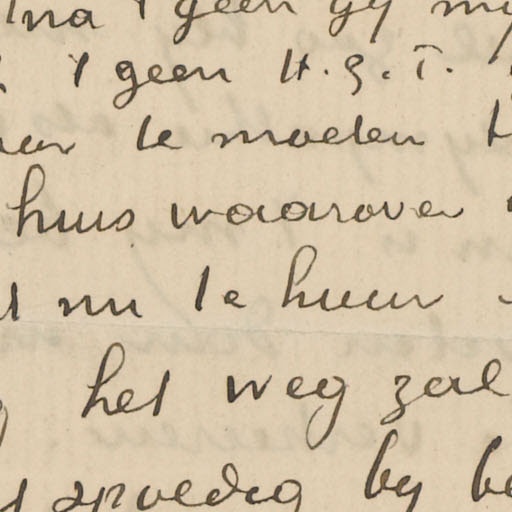 na 't geen gy my
't geen H.G.T.
te moeten
huis waarover
nu te huur
het weg zal
spoedig by be